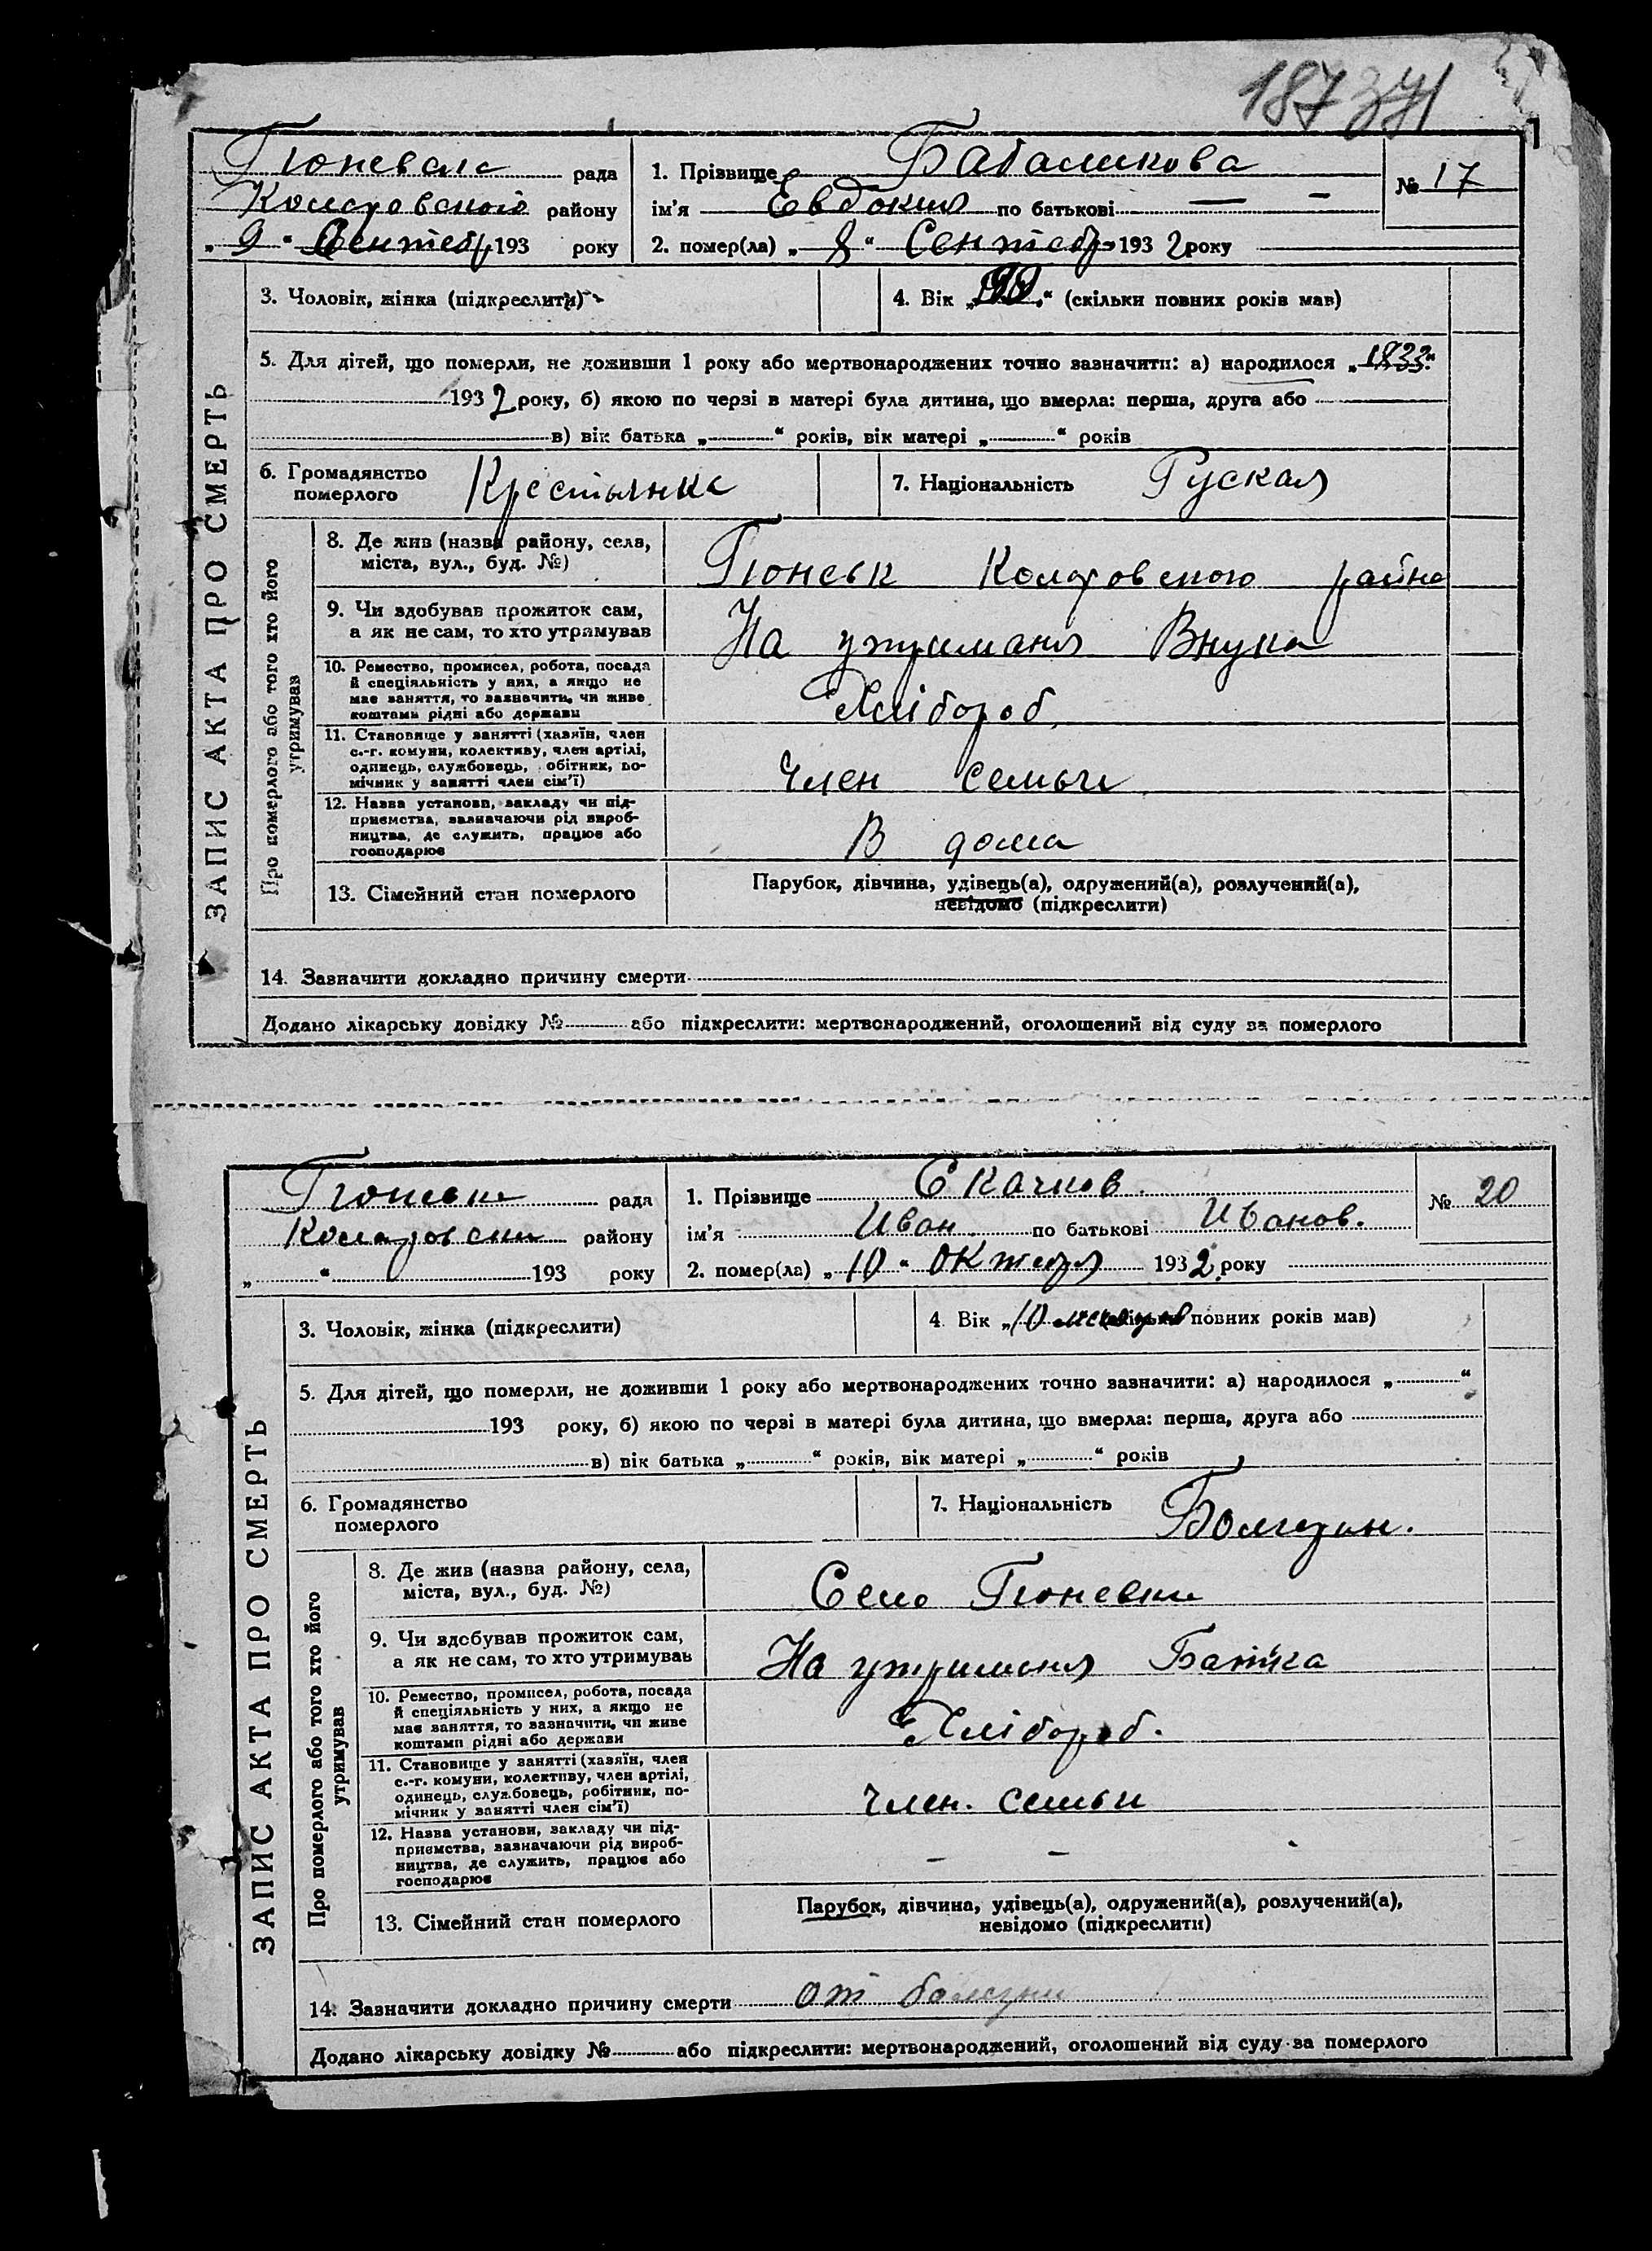 187 371
Гюневсла рада
Коларовского району
„ 9 “ Сентебр 193 року
1. Прізвище Бабаликова
ім'я Евдокия по батькові — –
№ 17
2. помер(ла) „ 8 “ Сентебр 1932 року
3. Чоловік, жінка (підкреслити)
4. Вік „ “ (скільки повних років мав)
5. Для дітей, що померли, не доживши 1 року або мертвонароджених точно зазначити: а) народилося „1833“
1932 року, б) якою по черзі в матері була дитина, що вмерла: перша, друга або
в) вік батька „ “ років, вік матері „ “ років
6. Громадянство
померлого
Крестьянка
7. Національність Руская
ЗАПИС АКТА ПРО СМЕРТЬ
Про померлого або того хто його
утримував
8. Де жив (назва району, села,
міста, вул., буд. №)
Коларовского райно
9. Чи здобував прожиток сам,
а як не сам, то хто утримував
На утриманя Внука
10. Ремество, промисел, робота, посада
й спеціяльність у них, а якщо не
має заняття, то зазначити, чи живе
коштами рідні або держави
Хлібороб
11. Становище у занятті (хазяїн, член
с.-г. комуни, колективу, член артілі,
одинець, службовець, обітник, по-
мічник у занятті член сім'ї)
Член семьи
12. Назва установи, закладу чи під-
приємства, зазначаючи рід вироб-
ництва, де служить, працює або
господарює
В дома
13. Сімейний стан померлого
Парубок, дівчина, удівець(а), одружений(а), розлучений(а),
невідомо (підкреслити)
14. Зазначити докладно причину смерти
Додано лікарську довідку № або підкреслити: мертвонароджений, оголошений від суду за померлого
рада
Коларовски району
„ “ 193 року
1. Прізвище Скачков
ім'я Иван по батькові Иванов.
№ 20
2. помер(ла) „ 10 “ Октября 1932 року
3. Чоловік, жінка (підкреслити)
4. Вік „10 месяцев повних років мав)
5. Для дітей, що померли, не доживши 1 року або мертвонароджених точно зазначити: а) народилося „ “
193 року, б) якою по черзі в матері була дитина, що вмерла: перша, друга або
в) вік батька „ “ років, вік матері „ “ років
6. Громадянство
померлого
7. Національність Болгарин.
ЗАПИС АКТА ПРО СМЕРТЬ
Про померлого або того хто його
утримував
8. Де жив (назва району, села,
міста, вул., буд. №)
Село Гюневки
9. Чи здобував прожиток сам,
а як не сам, то хто утримував
На утриманя Батька
10. Ремество, промисел, робота, посада
й спеціяльність у них, а якщо не
має заняття, то зазначити, чи живе
коштами рідні або держави
Хлібороб.
11. Становище у занятті (хазяїн, член
с.-г. комуни, колективу, член артілі,
одинець, службовець, робітник, по-
мічник у занятті член сім'ї)
Член. семьи
12. Назва установи, закладу чи під-
приємства, зазначаючи рід вироб-
ництва, де служить, працює або
господарює
– –
13. Сімейний стан померлого
Парубок, дівчина, удівець(а), одружений(а), розлучений(а),
невідомо (підкреслити)
14. Зазначити докладно причину смерти от болезни
Додано лікарську довідку № або підкреслити: мертвонароджений, оголошений від суду за померлого